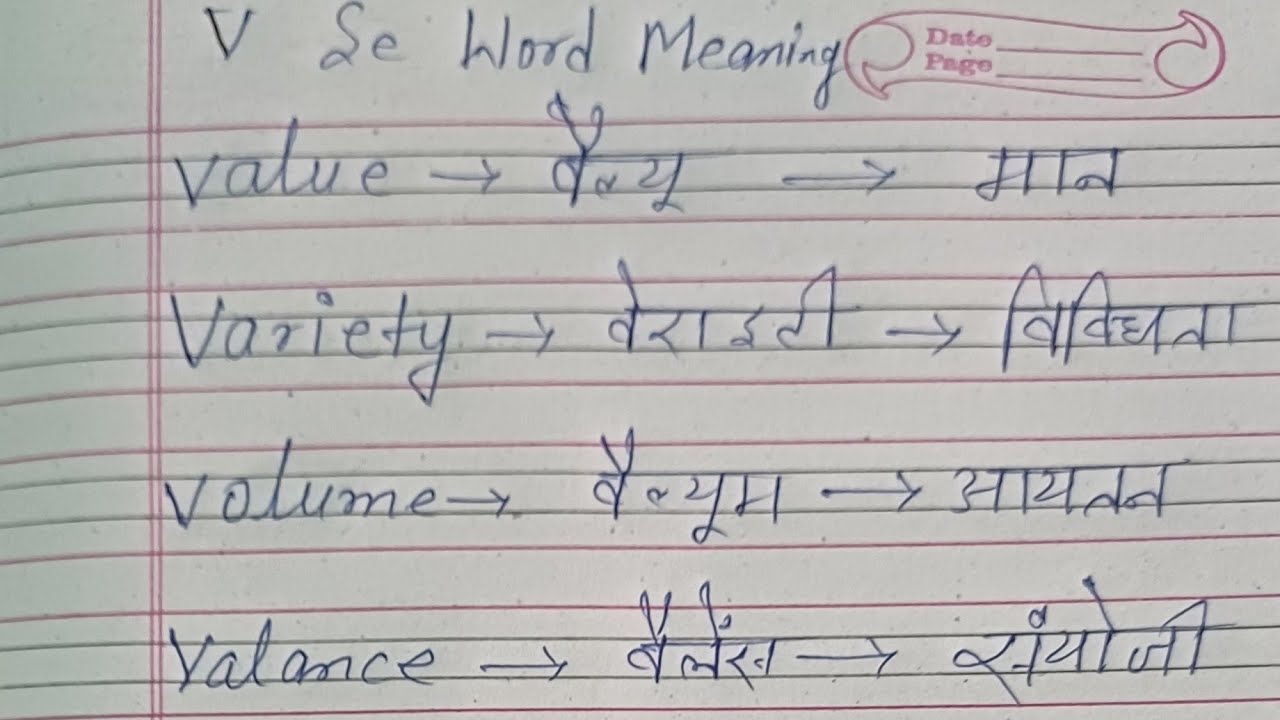 V Se Word Meaning
Date
Page
value → वैल्यू → मान
Variety → वेराइटी → विविधता
Volume → वैल्यूम → आयतन
Valance → वैलेंस → संयोजी